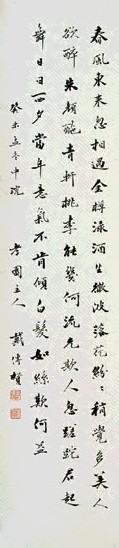 春風東來忽相過金樽淥酒生微波落花紛紛稍覺多美人
欲醉朱顏酡青軒桃李能幾何流光欺人忽蹉跎君起
舞日西夕當年意氣不肯傾白髮如絲歎何益
癸未 中浣 孝園主人 戴傳賢